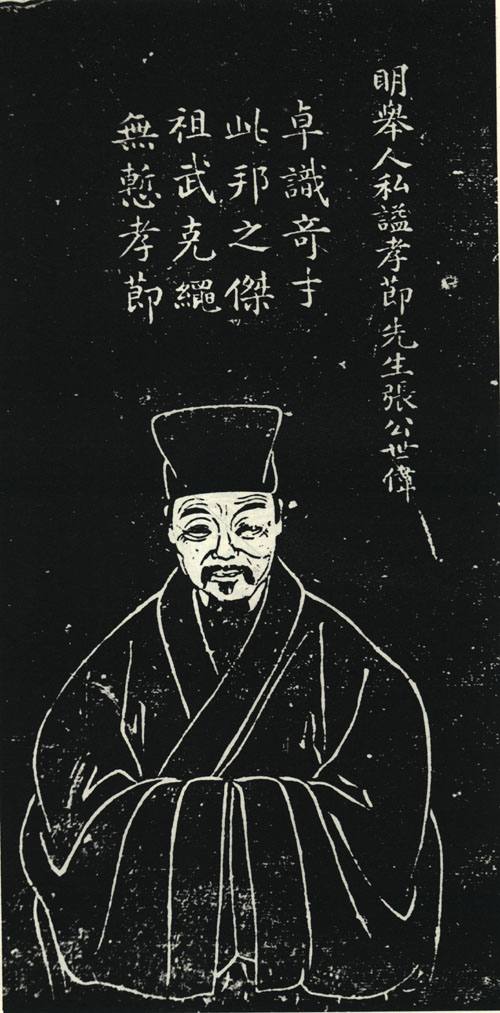 明舉人私謚孝節先生張公世偉
卓識奇才
此邦之傑
祖武克繩
無慙孝節